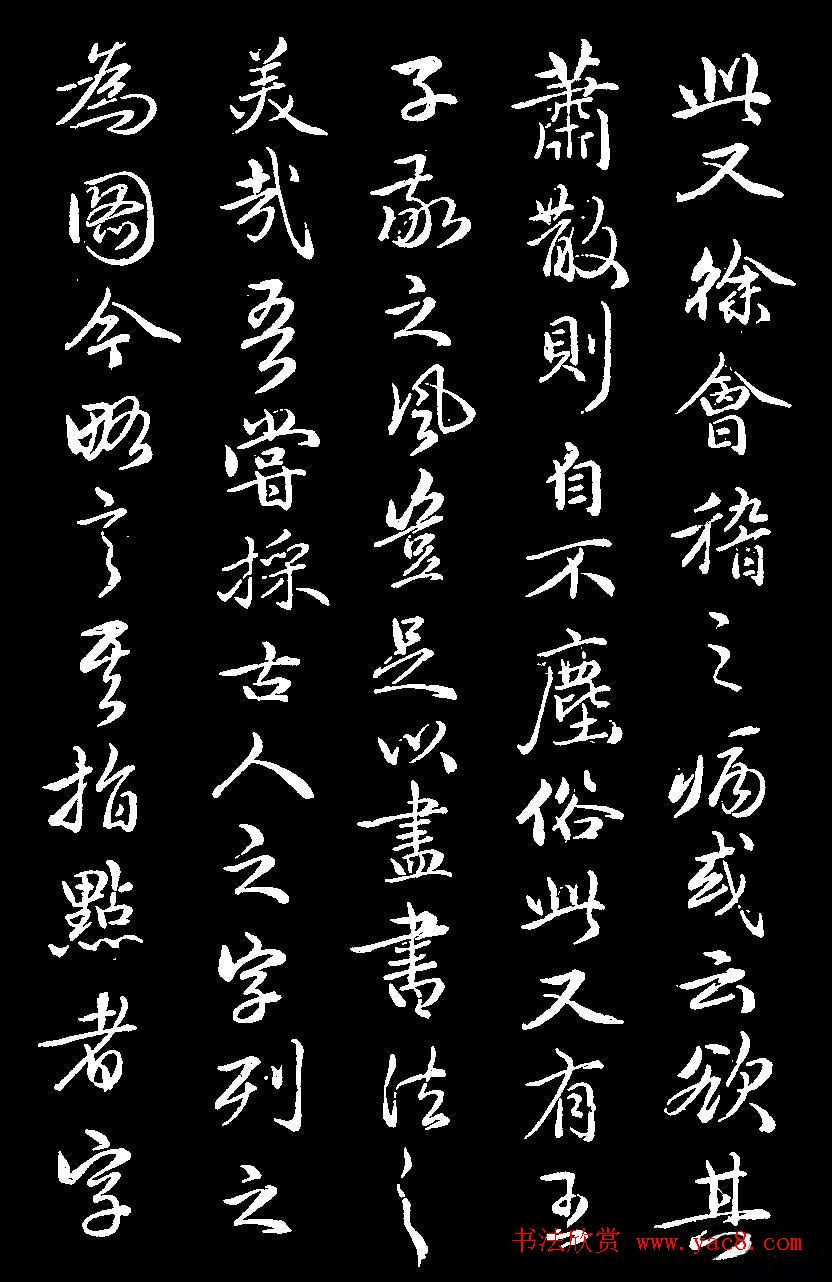 此又徐會稽之病或云欲其
蕭散則自不塵俗此又有王
子敬之風豈足以盡書法之
美哉吾嘗採古人之字列之
為圖今略言其指點者字
书法欣赏 www.yac8.com